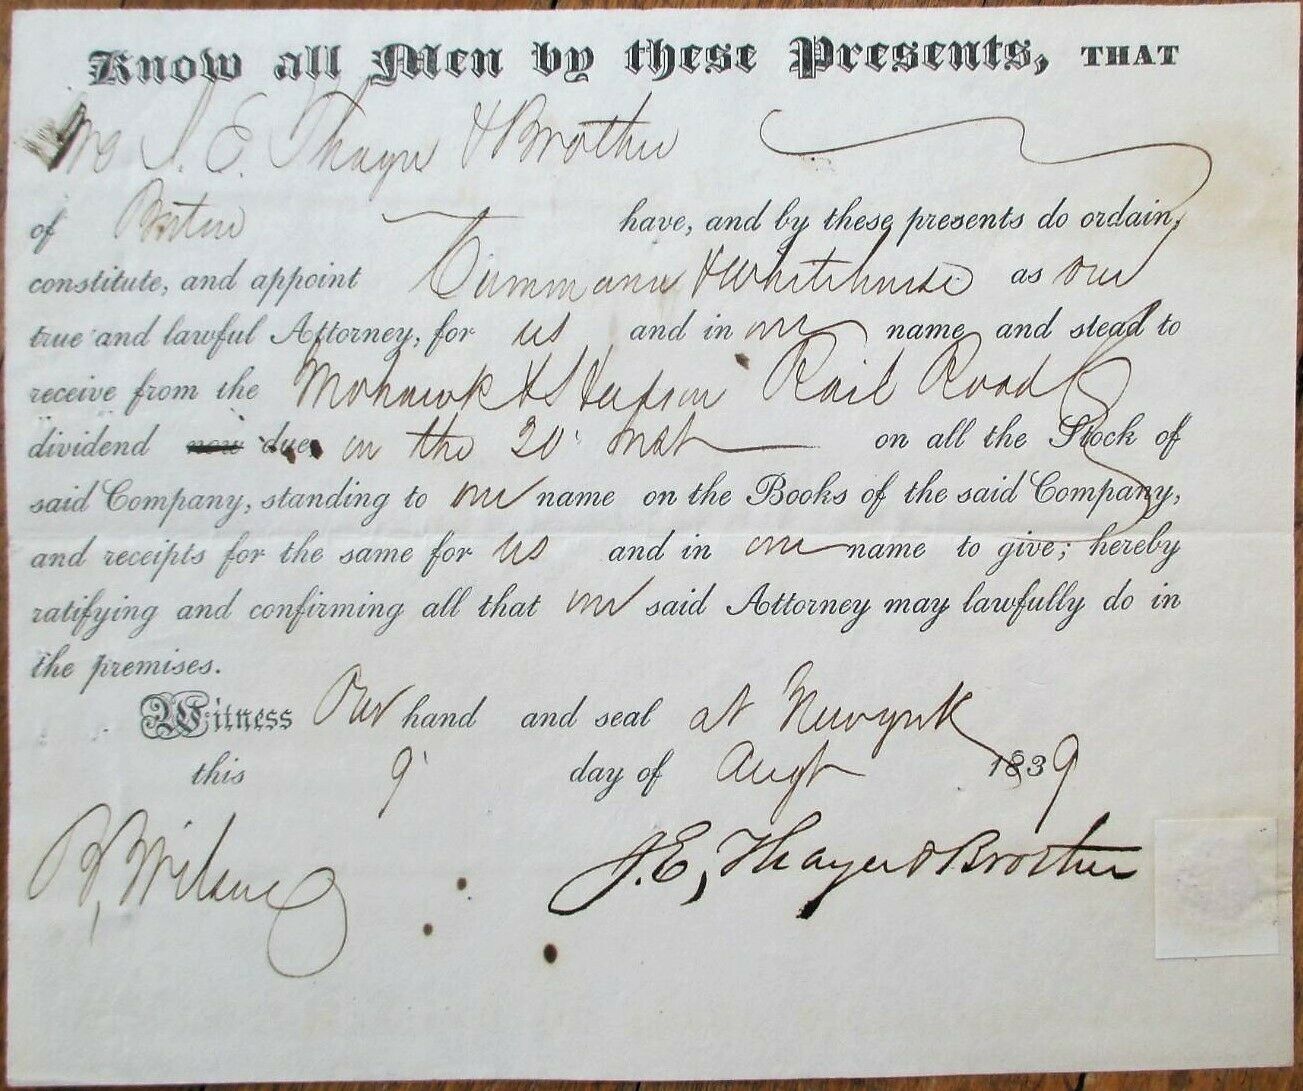 Know all Men by these Presents, THAT
We J. E. Thayer & Brother
of Boston have, and by these presents do ordain,
constitute, and appoint Cammann & Whitehouse as our
true and lawful Attorney, for us and in our name and stead to
receive from the Mohawk & Hudson Rail Road
dividend now due on the 20 inst on all the Stock of
said Company, standing to our name on the Books of the said Company,
and receipts for the same for us and in our name to give; hereby
ratifying and confirming all that our said Attorney may lawfully do in
the premises.
Witness Our hand and seal at New York
this 9 day of Augt 1839
Wilson J. E. Thayer & Brother